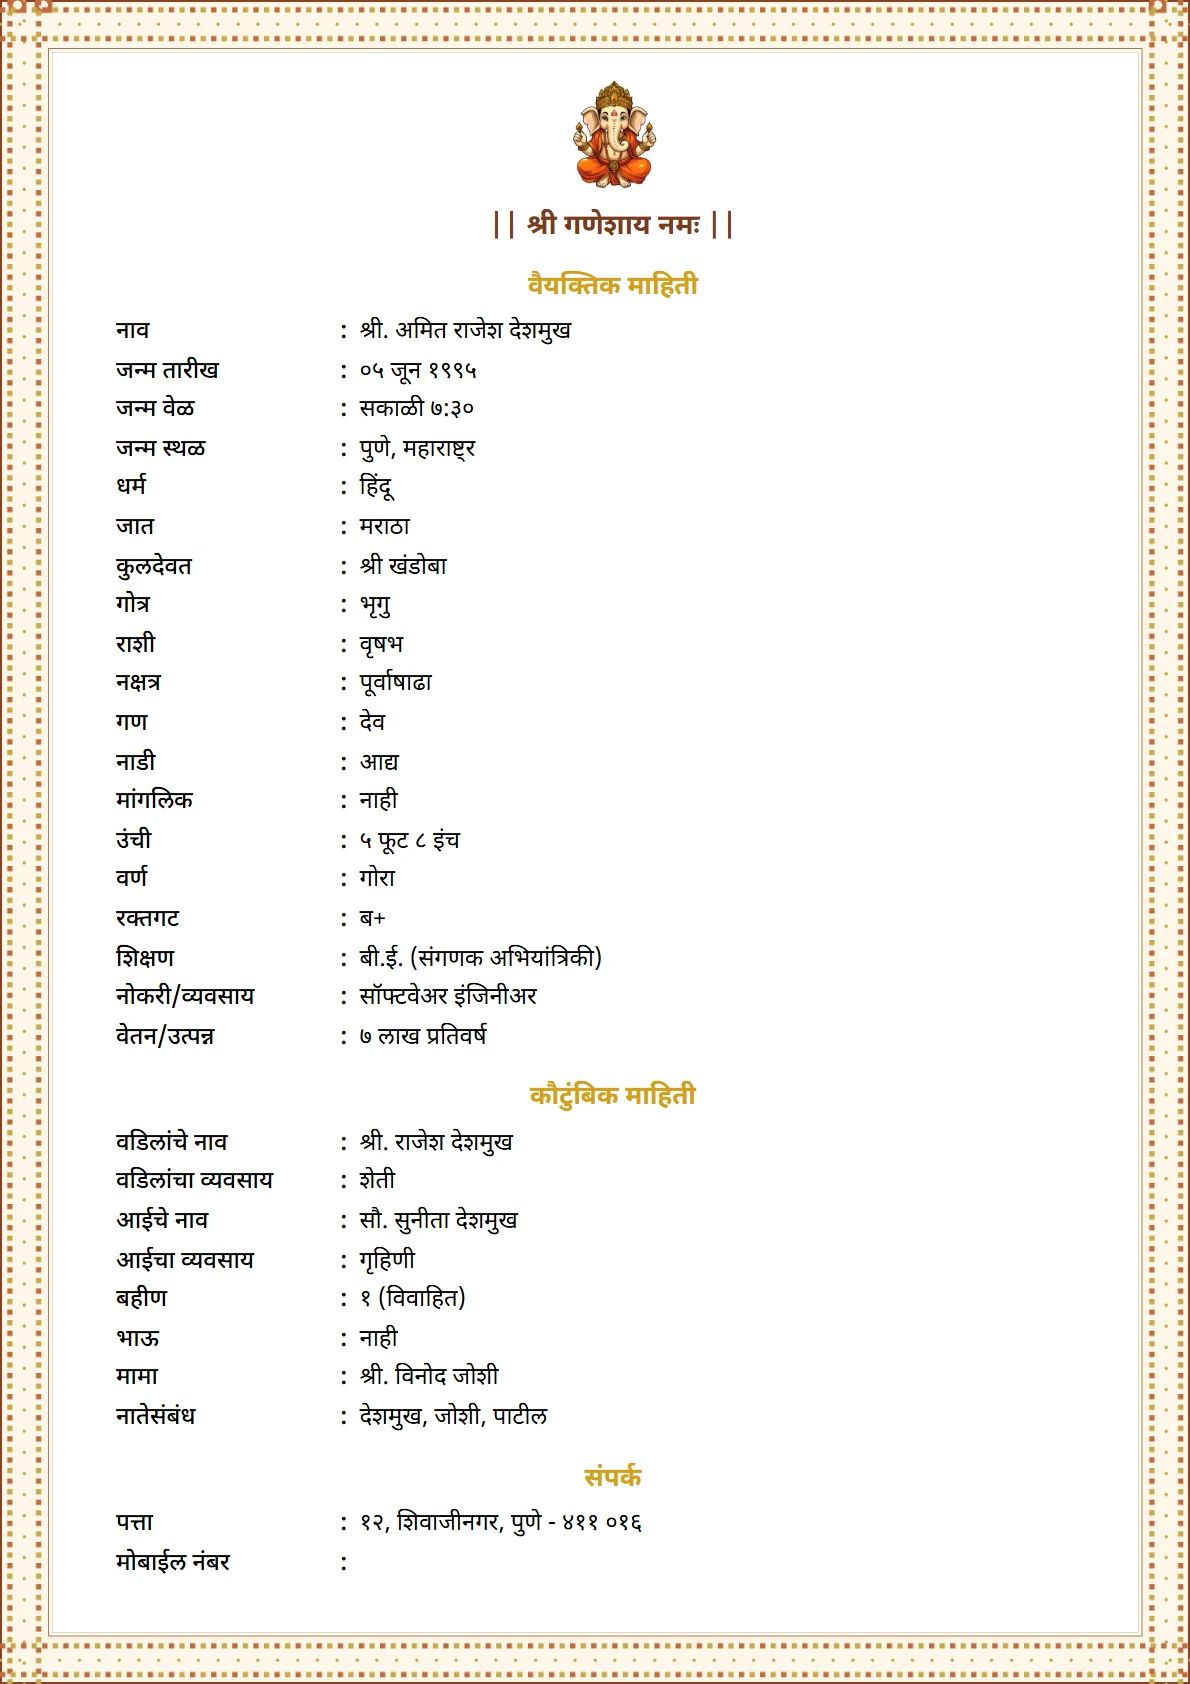 || श्री गणेशाय नमः ||
वैयक्तिक माहिती
नाव : श्री. अमित राजेश देशमुख
जन्म तारीख : ०५ जून १९९५
जन्म वेळ : सकाळी ७:३०
जन्म स्थळ : पुणे, महाराष्ट्र
धर्म : हिंदू
जात : मराठा
कुलदेवत : श्री खंडोबा
गोत्र : भृगु
राशी : वृषभ
नक्षत्र : पूर्वाषाढा
गण : देव
नाडी : आद्य
मांगलिक : नाही
उंची : ५ फूट ८ इंच
वर्ण : गोरा
रक्तगट : ब+
शिक्षण : बी.ई. (संगणक अभियांत्रिकी)
नोकरी/व्यवसाय : सॉफ्टवेअर इंजिनीअर
वेतन/उत्पन्न : ७ लाख प्रतिवर्ष
कौटुंबिक माहिती
वडिलांचे नाव : श्री. राजेश देशमुख
वडिलांचा व्यवसाय : शेती
आईचे नाव : सौ. सुनीता देशमुख
आईचा व्यवसाय : गृहिणी
बहीण : १ (विवाहित)
भाऊ : नाही
मामा : श्री. विनोद जोशी
नातेसंबंध : देशमुख, जोशी, पाटील
संपर्क
पत्ता : १२, शिवाजीनगर, पुणे - ४११ ०१६
मोबाईल नंबर :